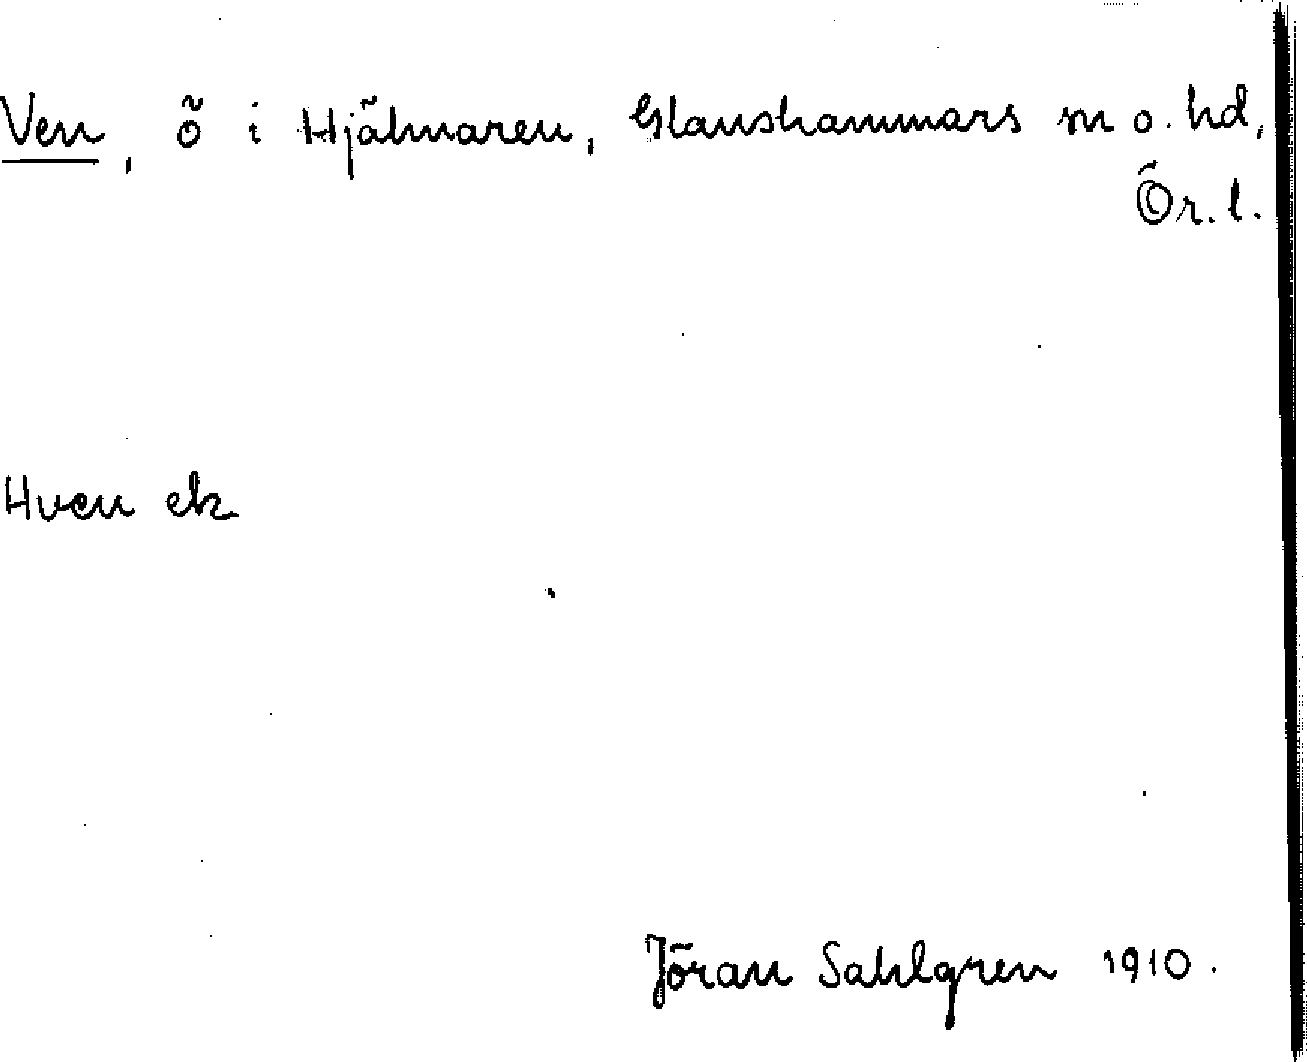 Ven, ö i Hjälmaren, Glanshammars sn o. hd,
Ör. l.
Hven ek
Jöran Sahlgren 1910.